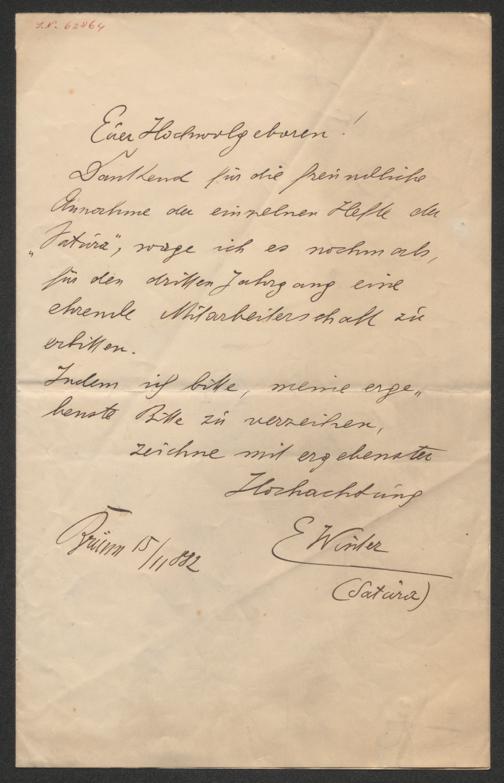 I.N. 62864
Euer Hochwolgeboren!
Dankend für die freundliche
Annahme der einzelnen Hefte der
„Satura", wage ich es nochmals,
für den dritten Jahrgang eine
ehrende Mitarbeiterschaft zu
erbitten.
Indem ich bitte, meine erge„
benste Bitte zu verzeihen,
zeichne mit ergebenster
Hochachtung
E Winter
Brünn 15/11 882
(Satura)